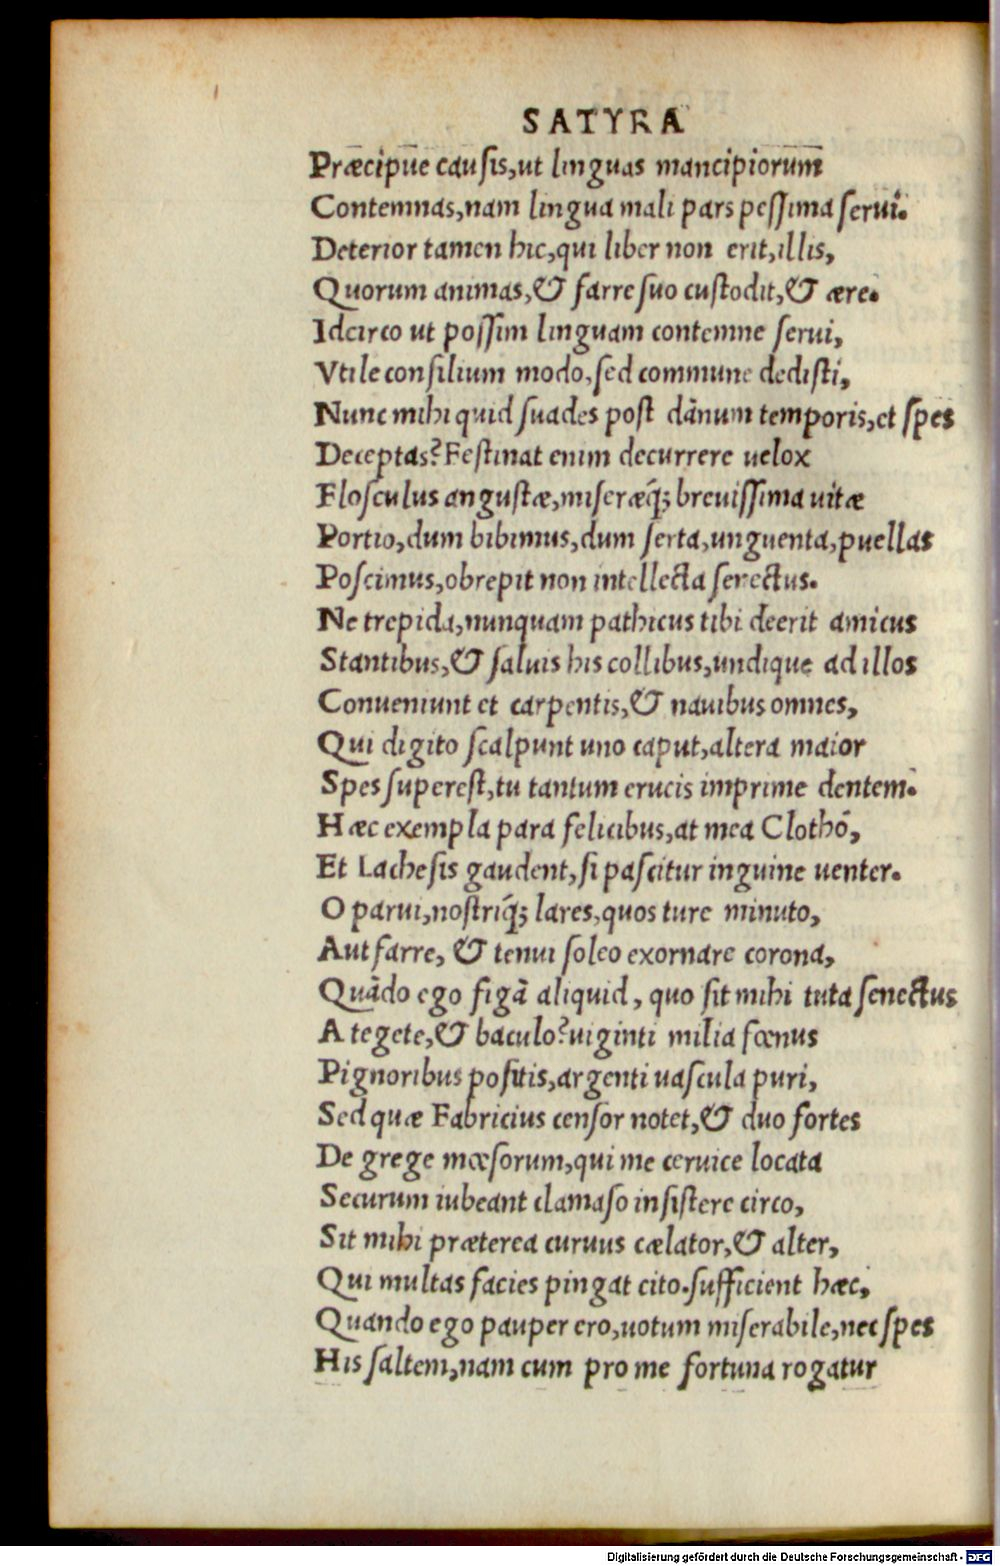 SATYRA
Præcipue causis,ut linguas mancipiorum
Contemnas,nam lingua mali pars pessima serui.
Deterior tamen hic,qui liber non erit,illis,
Quorum animas,& farre suo custodit,& ære.
Idcirco ut possim linguam contemne serui,
Vtile consilium modo,sed commune dedisti,
Nunc mihi quid suades post dãnum temporis,et spes
Deceptas?Festinat enim decurrere uelox
Flosculus angustæ,miseræq́; breuissima uitæ
Portio,dum bibimus,dum serta,unguenta,puellas
Poscimus,obrepit non intellecta senectus.
Ne trepida,nunquam pathicus tibi deerit amicus
Stantibus,& saluis his collibus,undique ad illos
Conueniunt et carpentis,& nauibus omnes,
Qui digito scalpunt uno caput,altera maior
Spes superest,tu tantum erucis imprime dentem.
Hæc exempla para felicibus,at mea Clothó,
Et Lachesis gaudent,si pascitur inguine uenter.
O parui,nostriq́; lares,quos ture minuto,
Aut farre, & tenui soleo exornare corona,
Quãdo ego figã aliquid, quo sit mihi tuta senectus
A tegete,& baculo?uiginti milia fœnus
Pignoribus positis,argenti uascula puri,
Sed quæ Fabricius censor notet,& duo fortes
De grege mœsorum,qui me ceruice locata
Securum iubeant clamaso insistere circo,
Sit mihi præterea curuus cælator,& alter,
Qui multas facies pingat cito.sufficient hæc,
Quando ego pauper ero,uotum miserabile,nec spes
His saltem,nam cum pro me fortuna rogatur
Digitalisierung gefördert durch die Deutsche Forschungsgemeinschaft - DFG